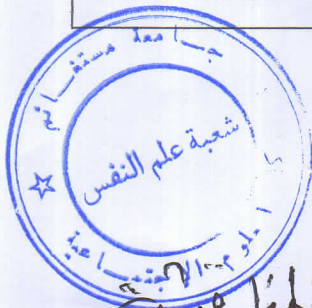 جامعة مستغانم
شعبة علم النفس
العلوم الاجتماعية